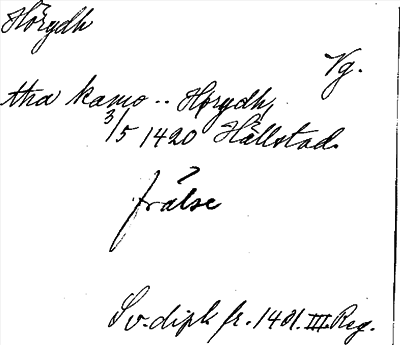 Hörydh
Vg.
tha kamo .. Hörydh,
3/5 1420 Hällstad.
?
frälse
Sv. dipl. fr. 1401. III. Reg.